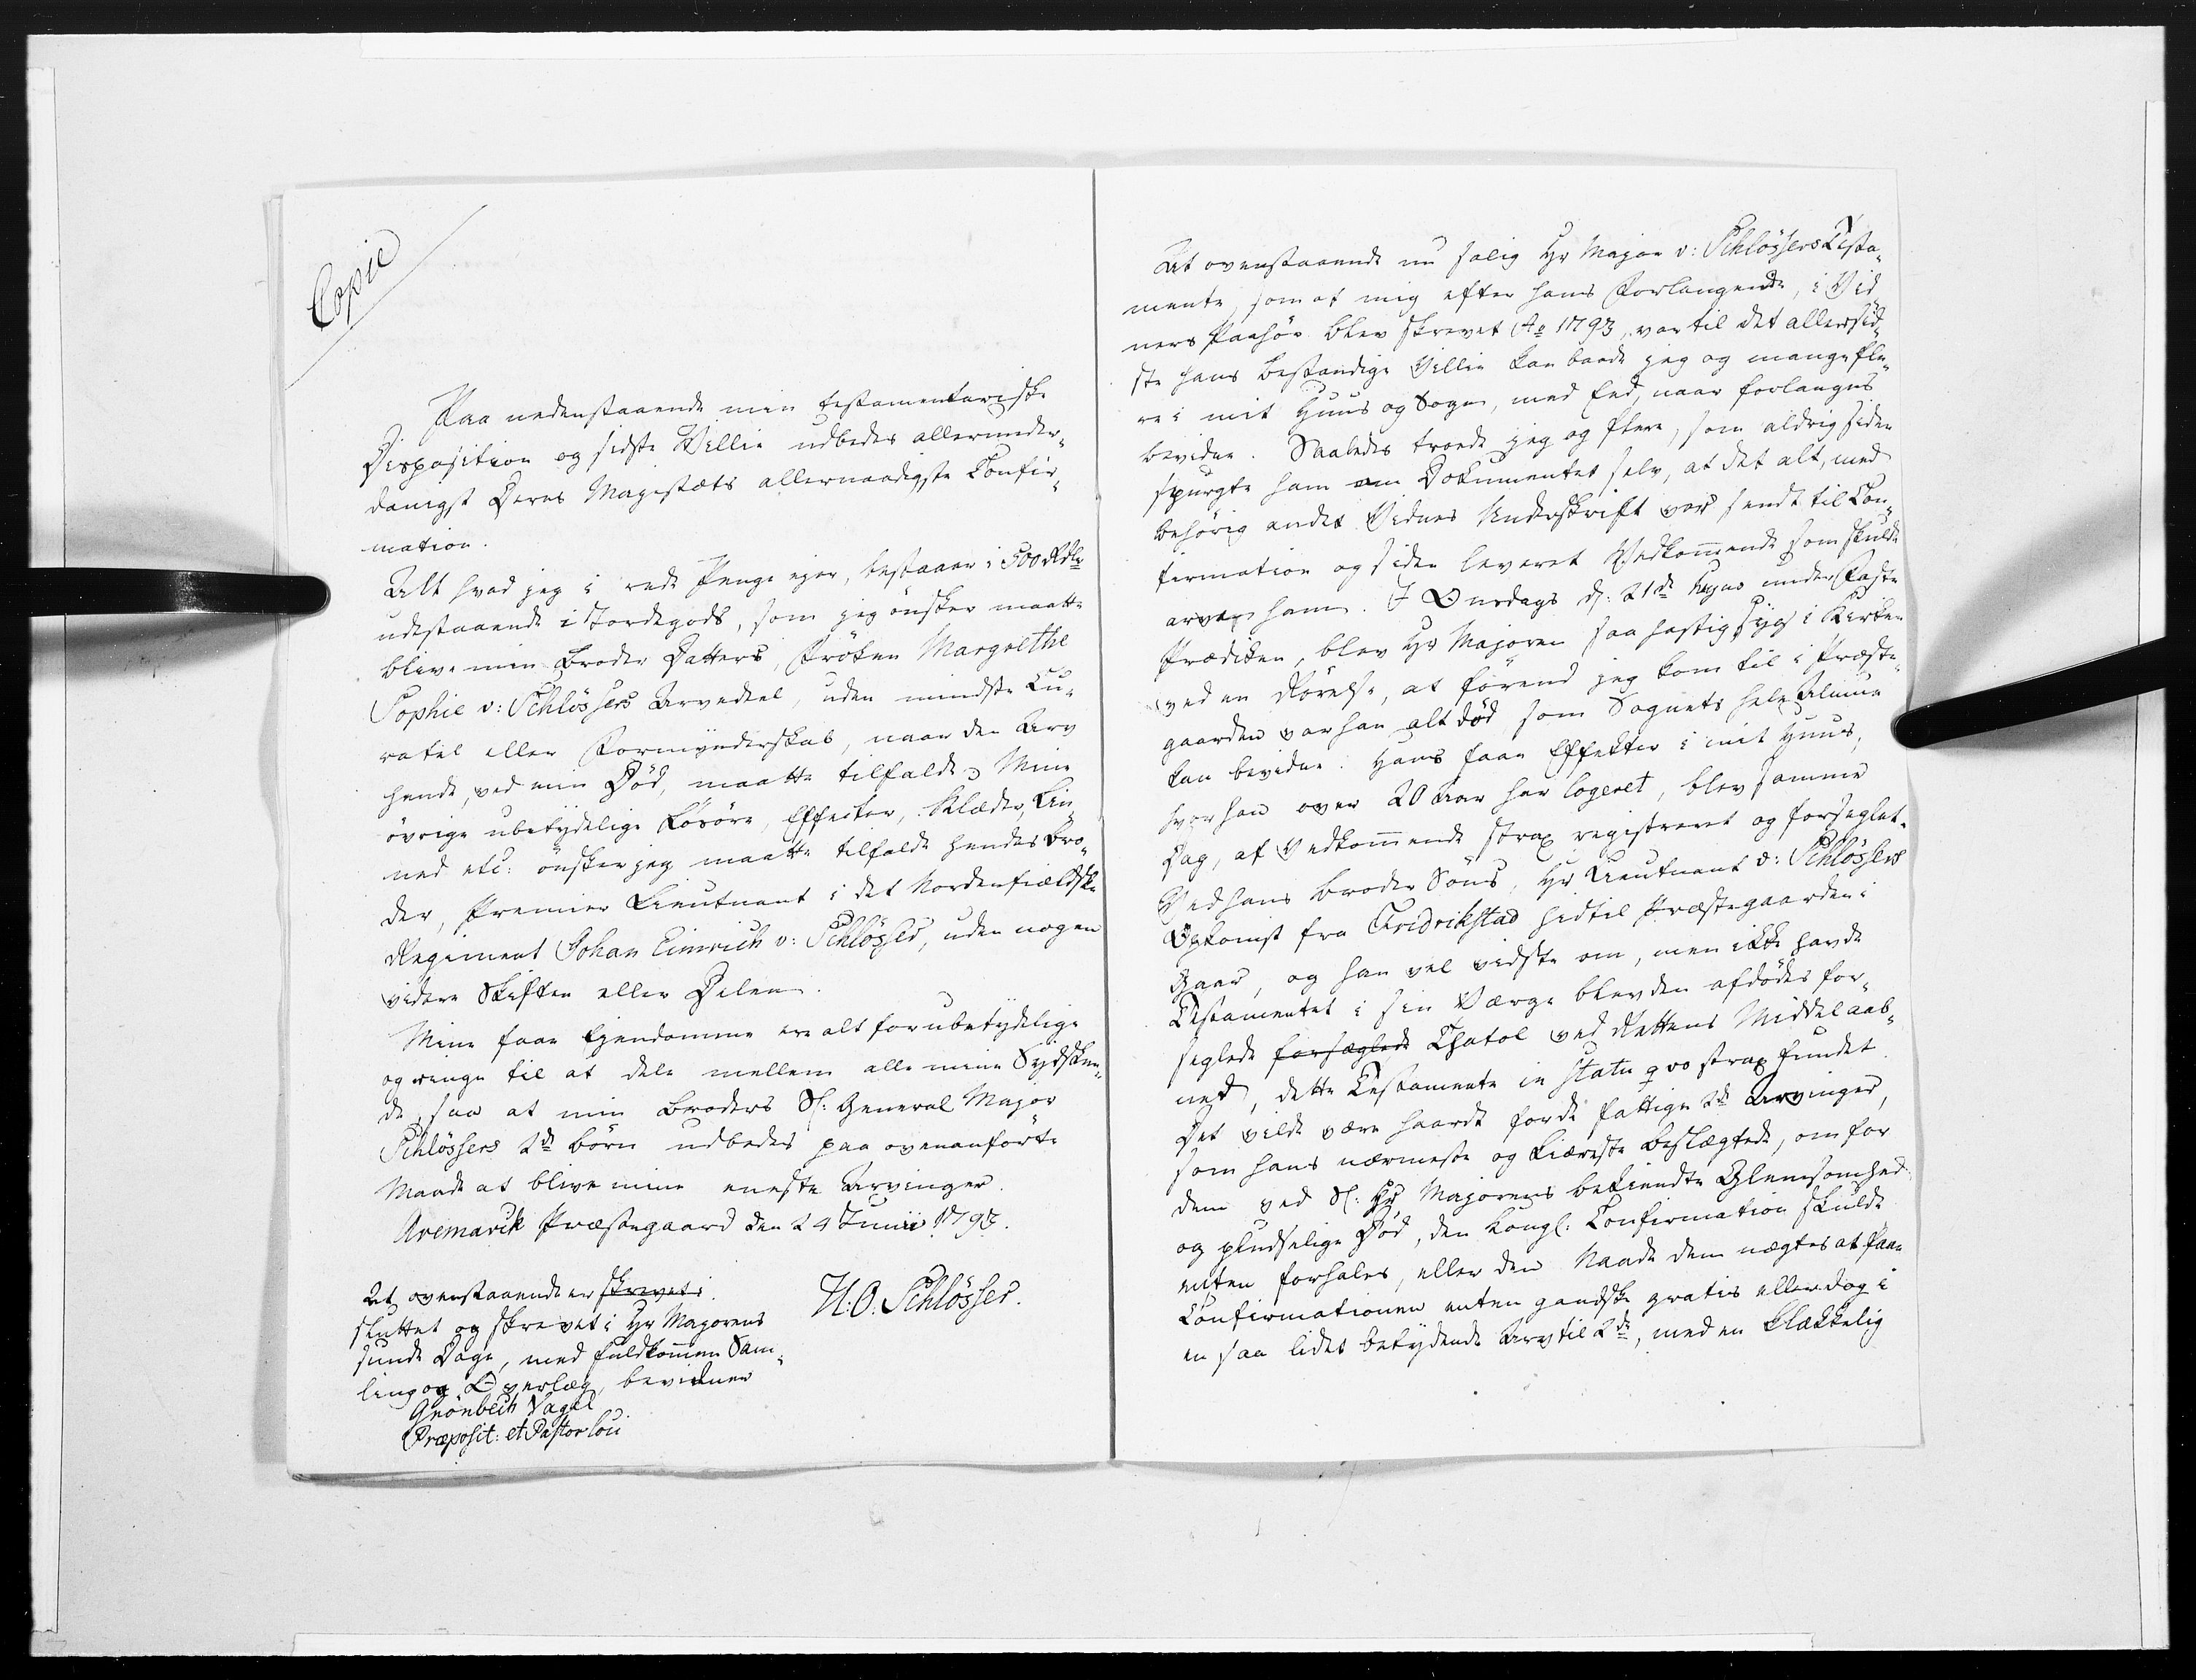 Copie
Paa nedenstaaende min testamentariske
Disposition og sidste Villie udbedes allerunder-
danigst Deres Majestæts allernaadigste Confir-
mation.
Alt hvad jeg i rede Penge ejer, bestaaer i 500 Rdlr
udestaaende i Jordegods, som jeg ønsker maatte
blive min Broder Datters, Frøken Margrethe
Sophie v: Schlössers Arvedeel, uden mindste Cu-
ratel eller Formynderskab, naar den Arv
hende, ved min Død, maatte tilfalde. Mine
övrige ubetydelige Løsøre, Effecter, Klæder, Lin
ned etc: ønsker jeg maatte tilfalde hendes Bro-
der, Premier Lieutnant i det Nordenfieldske
Regiment Johan Eimrich v: Schlösser, uden nogen
videre Skiften eller Delen.
Mine faae Ejendomme ere alt for ubetydelige
og ringe til at dele mellem alle mine Sydsken-
de, saa at min Broders Sl: General Major
Schlössers 2de Börn udbedes paa ovenanförte
Maade at blive mine eneste Arvinger.
Aremarck Præstegaard den 24 Junii 1793.
H: O: Schlösser.
At ovenstaaende er skrevet i
sluttet og skrevet i Hr Majorens
sunde Dage, med fuldkommen Sam-
ling og Overlæg, bevidner
Grönbech Vagel
Præposit: et Pastor loci
At ovenstaaende nu salig Hr Major v: Schlössers Testa-
mente, som af mig efter hans Forlangende, i Vid
ners Paahör blev skrevet Ao 1793, var til det allersid-
ste hans bestandige Villie kan baade jeg og mange fle-
re i mit Huus og Sogn, med Eed, naar forlanges
bevidne. Saaledes troede jeg og flere, som aldrig siden
spurgte ham om Dokumentet selv, at det alt, med
behörig andet Vidnes Underskrift var sendt til Con-
firmation og siden leveret Vedkommende som skulde
arve ham. I Onsdags d: 21de hujus under Faste
Prædiken, blev Hr Majoren saa hastig syg i Kirken
ved en Rørelse, at førend jeg kom til i Præste-
gaarden var han alt död som Sognets hele Almue
kan bevidne. Hans faae Effekter i mit Huus,
hvor han over 20 Aar har logeret, blev samme
Dag, af Vedkommende strax registreret og forseglet.
Ved hans Broder Söns, Hr Lieutnant v: Schlössers
Opkomst fra Fridrikstad hidtil Præstegaarden i
Gaar, og han vel vidste om, men ikke havde
Testamentet i sin Værge blev den afdödes for-
seglede forsæglede Chatol ved Rettens Middel aab-
net, dette Testamente in statu qvo strax fundet.
Det vilde være haardt for de fattige 2de Arvinger,
som hans nærmeste og kiæreste Beslægtede, om for
dem ved Sl: Hr Majorens bekiendte Glemsomhed
og pludselige Död, den Kongl: Confirmation skulde
enten forhales, eller den Naade dem nægtes at faae
Confirmationen enten gandske gratis eller dog i
en saa lidet betydende Arv til 2de, med en Klækkelig